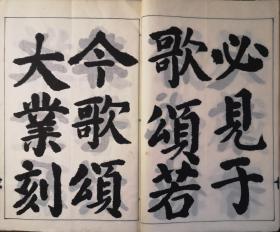 必見于
歌頌若
今歌頌
大業刻